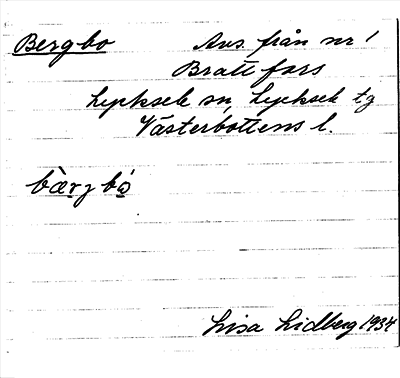 Bergbo Avs. från nr 1
Brattfors
Lycksele sn, Lycksele tg
Västerbottens l.
bæ̀rg bó
Lisa Lidberg 1934